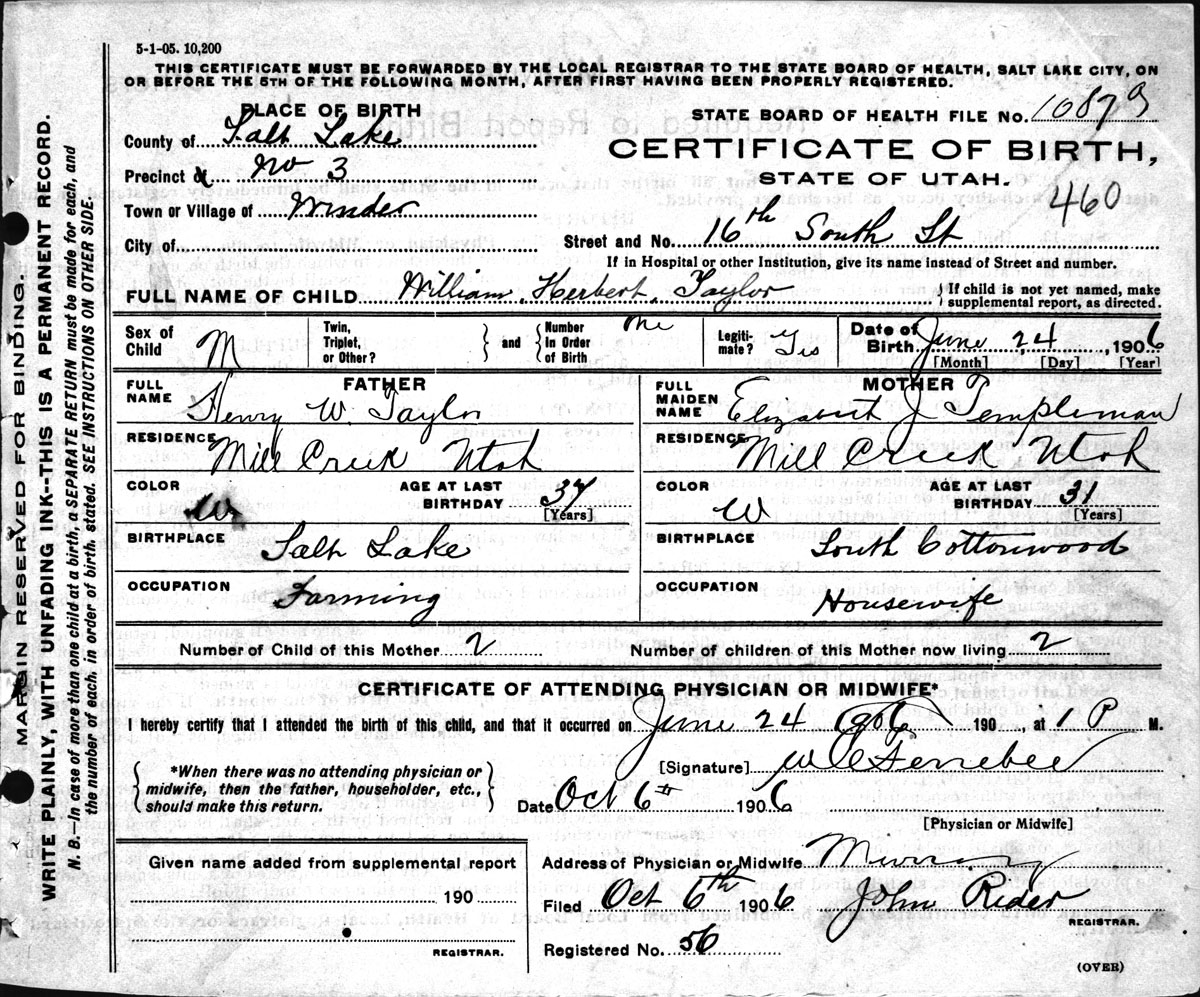 5-1-05. 10,200
THIS CERTIFICATE MUST BE FORWARDED BY THE LOCAL REGISTRAR TO THE STATE BOARD OF HEALTH, SALT LAKE CITY, ON
OR BEFORE THE 5TH OF THE FOLLOWING MONTH, AFTER FIRST HAVING BEEN PROPERLY REGISTERED.
PLACE OF BIRTH
STATE BOARD OF HEALTH FILE No. 10879
County of Salt Lake
CERTIFICATE OF BIRTH,
Precinct of No 3
STATE OF UTAH.
460
Town or Village of Winder
City of
Street and No. 16th South St
If in Hospital or other Institution, give its name instead of Street and number.
FULL NAME OF CHILD William Herbert Taylor
If child is not yet named, make
supplemental report, as directed.
Sex of
Child M
Twin,
Triplet,
or Other?
and
Number
In Order
of Birth
one
Legiti-
mate? Yes
Date of
Birth June 24, 1906
[Month] [Day] [Year]
FULL
NAME
FATHER
Henry W. Taylor
FULL
MAIDEN
NAME
MOTHER
Elizabeth J Templeman
RESIDENCE
Mill Creek Utah
RESIDENCE
Mill Creek Utah
COLOR
W
AGE AT LAST
BIRTHDAY 37
[Years]
COLOR
W
AGE AT LAST
BIRTHDAY 31
[Years]
BIRTHPLACE
Salt Lake
BIRTHPLACE
South Cottonwood
OCCUPATION
Farming
OCCUPATION
Housewife
Number of Child of this Mother 2
Number of children of this Mother now living 2
CERTIFICATE OF ATTENDING PHYSICIAN OR MIDWIFE*
I hereby certify that I attended the birth of this child, and that it occurred on June 24 1906 190 , at 1 P M.
*When there was no attending physician or
midwife, then the father, householder, etc.,
should make this return.
[Signature] W C Ferrebee
Date Oct 6th 1906
[Physician or Midwife]
Given name added from supplemental report
190
REGISTRAR.
Address of Physician or Midwife Murray
Filed Oct 6th 1906 John Rider
REGISTRAR.
Registered No. 56
(OVER)
MARGIN RESERVED FOR BINDING.
WRITE PLAINLY, WITH UNFADING INK--THIS IS A PERMANENT RECORD.
N. B.—In case of more than one child at a birth, a SEPARATE RETURN must be made for each, and
the number of each, in order of birth, stated. SEE INSTRUCTIONS ON OTHER SIDE.